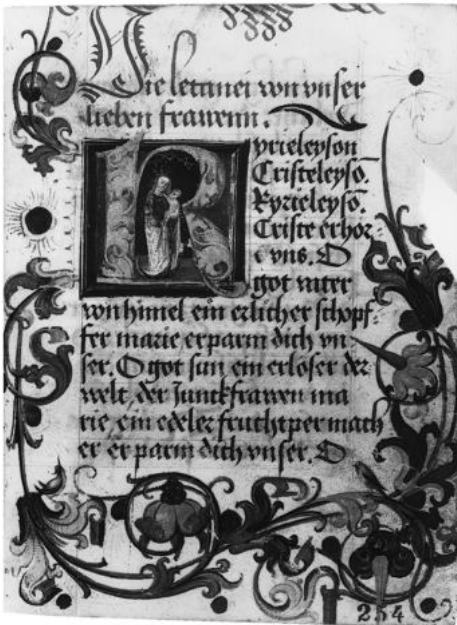 Die lettanei von vnser
lieben frawenn.
Kyrieleyson
Cristeleysō.
Kyrieleysō.
Criste erhor-
e vns. O
got vater
von himel ein erlicher schopf-
fer marie erparm dich vn
ser. O got sun ein erloser der
welt, der Junckfrawen ma
rie, ein edeler fruchtper mach
er erparm dich vnser. O
254